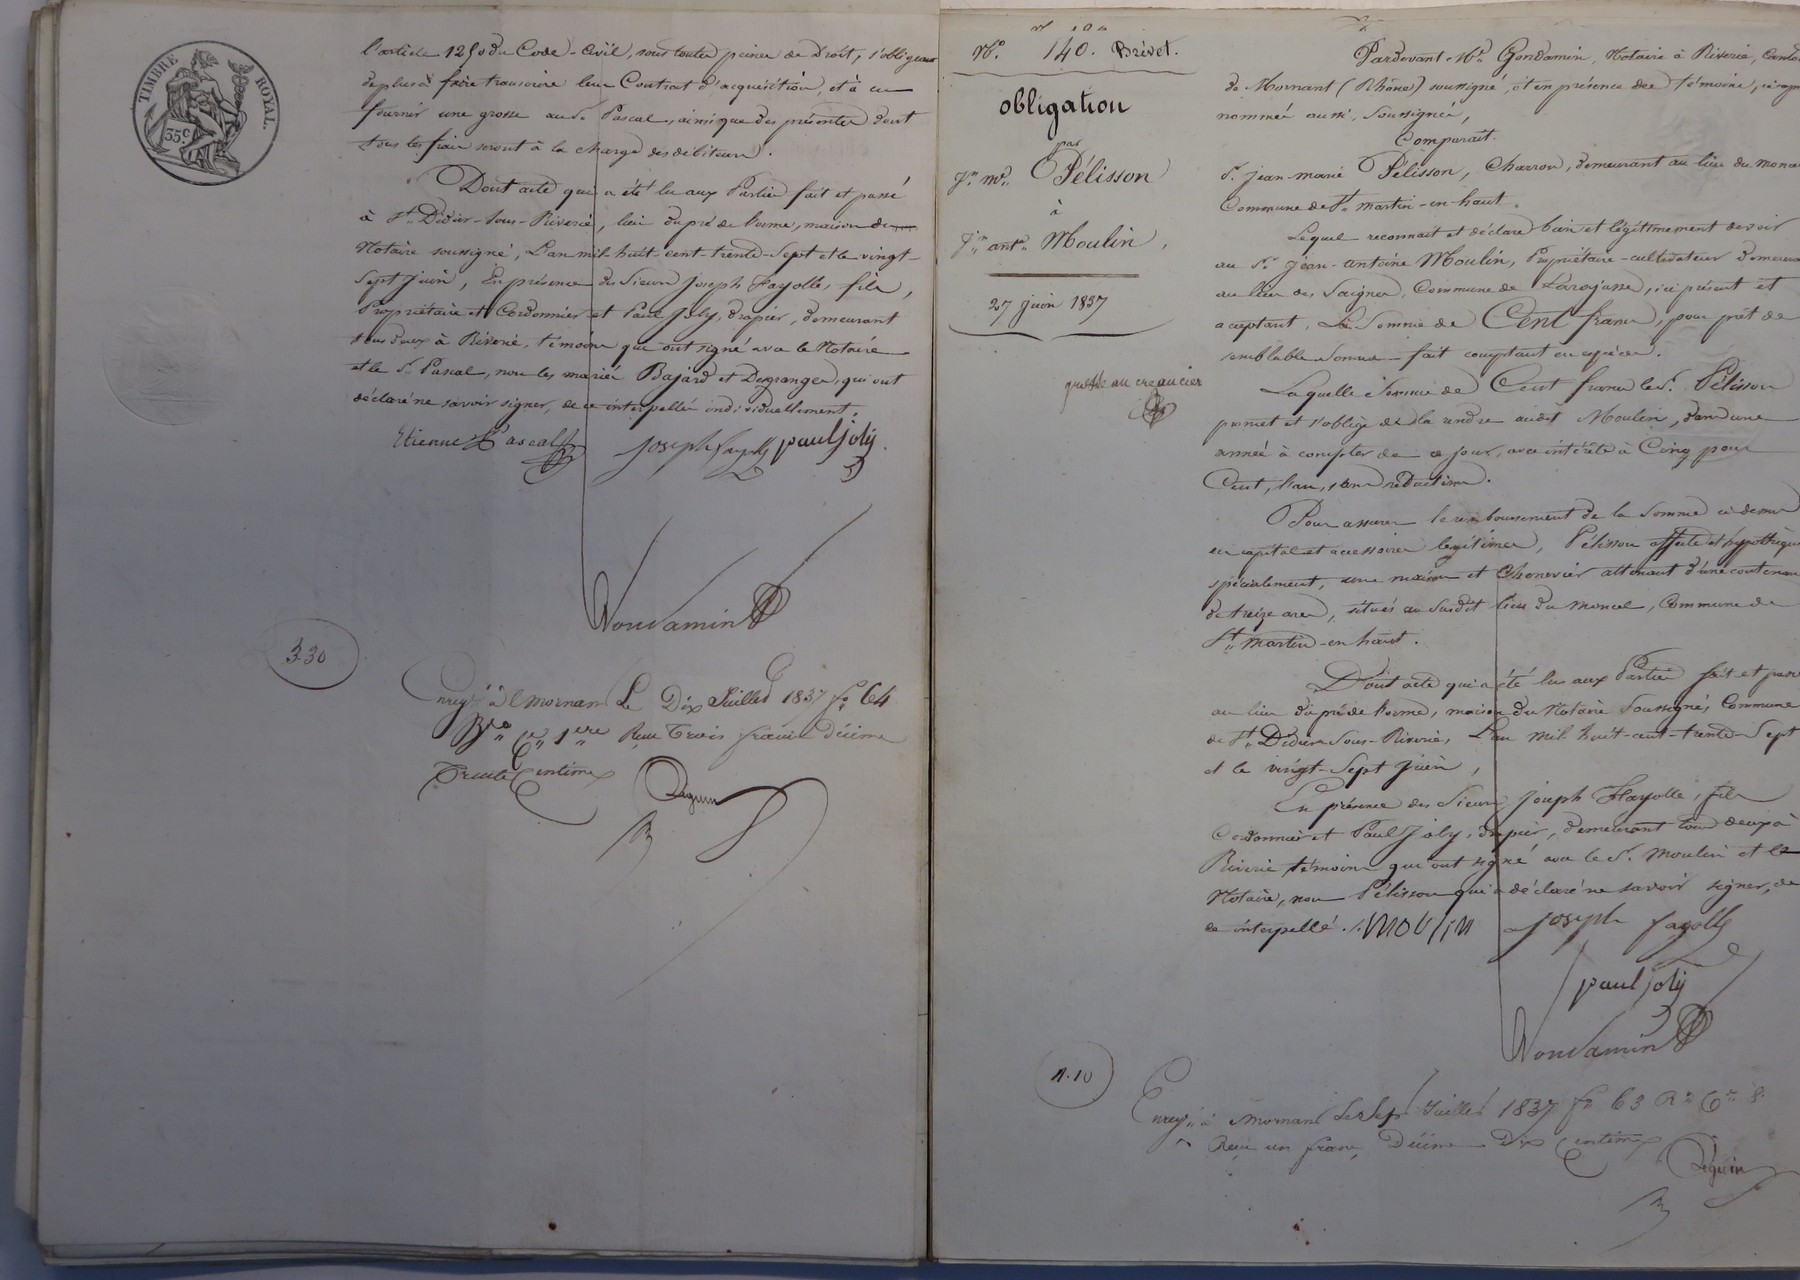 TIMBRE ROYAL.
35c.
l'article 1250 du Code-Civil, sous toutes peines de Droit, s'obligeant
de plus à faire transcrire leur Contrat d'acquisition, et à en
fournir une grosse au Sr. Pascal, ainsi que des présentes dont
tous les frais seront à la charge des débiteurs.
Dont acte qui a été lu aux Parties fait et passé
à St. Didier-sous-Riverie, lieu du pré de Lorme, maison du
Notaire soussigné, L'an mil huit cent trente-Sept et le vingt-
Sept Juin, En présence des Sieurs Joseph Fayolle, fils,
Propriétaire et Cordonnier et Paul Joly, drapier, demeurant
tous deux à Riverie, témoins qui ont signé avec le Notaire
et le Sr. Pascal, non les mariés Bajard et Desgranges, qui ont
déclaré ne savoir signer, de ce interpellés individuellement.
Etienne Pascal joseph fayolle paul joly
Gondamin
3-30
Enregé à Mornant Le Dix Juillet 1837 fo 64
Vo Ce 1ere Reçu Trois francs décime
Trente Centimes
Seguin
No. 140. Brévet.
obligation
par
Jn. mie. Pélisson
à
Jn. ante. Moulin,
27 Juin 1837
grosse au creancier
Pardevant Me. Gondamin, Notaire à Riverie, Canton
de Mornant (Rhône) soussigné, et en présence des témoins, ci-après
nommés aussi Soussignés,
Comparait.
Sr. Jean-marie Pélisson, Charron, demeurant au lieu du moncel
Commune de St. Martin-en-haut.
Lequel reconnait et déclare bien et légitimement devoir
au Sr. Jean-Antoine Moulin, Propriétaire-cultivateur demeurant
au lieu des Saignes, Commune de Larajasse, ici présent et
acceptant, La Somme de Cent francs, pour prêt de
semblable somme fait comptant en espèces.
Laquelle Somme de Cent francs le Sr. Pélisson
promet et s'oblige de la rendre audit Moulin, dans une
année à compter de ce jour, avec intérêts à Cinq pour
Cent, l'an, sans réduction.
Pour assurer le remboursement de la Somme ci-dessus
en capital et accessoires légitimes, Pélisson affecte et hypothèque
spécialement, une maison et Chenevier attenant d'une contenance
de treize ares, situés au susdit lieu du Moncel, Commune de
St. Martin-en-haut.
Dont acte qui a été lu aux Parties fait et passé
au lieu du pré de Lorme, maison du Notaire Soussigné, Commune
de St. Didier-Sous-Riverie, L'an mil huit-cent-trente-Sept
et le vingt-Sept Juin,
En présence des Sieurs Joseph Fayolle, fils
Cordonnier et Paul Joly, drapier, demeurant tous deux à
Riverie témoins qui ont signé avec le Sr. Moulin et le
Notaire, non Pélisson qui a déclaré ne savoir signer, de
ce interpellé. MOUliN joseph fayolle
paul joly
Gondamin
1.10
Enregé à Mornant Le Sept Juillet 1837 fo 63 Ro Ce 8.
Reçu un franc Décime Dix Centimes
Seguin